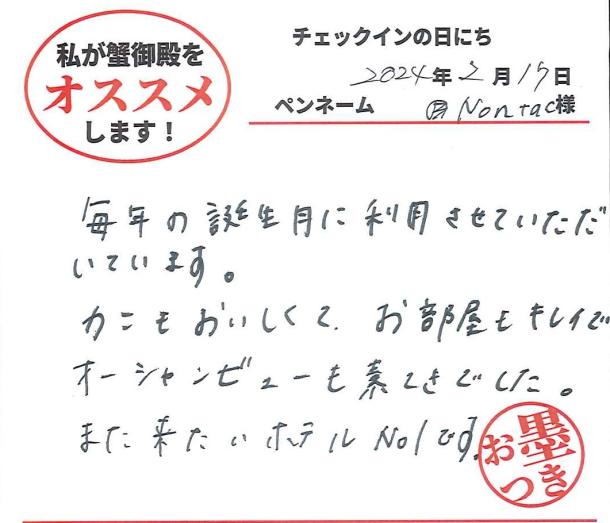 私が蟹御殿を
オススメ
します！
チェックインの日にち
2024年2月17日
ペンネーム
Nontac様
毎年の誕生月に利用させていただ
いています。
カニもおいしくて、お部屋もキレイで
オーシャンビューも素てきでした。
また来たいホテルNo1です。
お墨つき